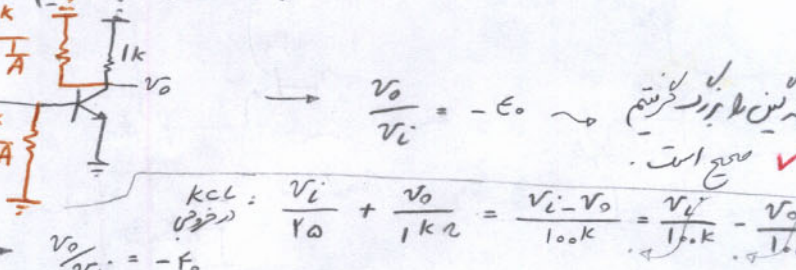 k
1/A
1k
v₀
→ v₀/vᵢ = - ۴۰ ⤳ گین را بزرگ گرفتیم
صحیح است. ✓
A
KCL در خروجی : vᵢ/۲۵ + v₀/1kΩ = (vᵢ - v₀)/100k = vᵢ/100k - v₀
= -۴۰